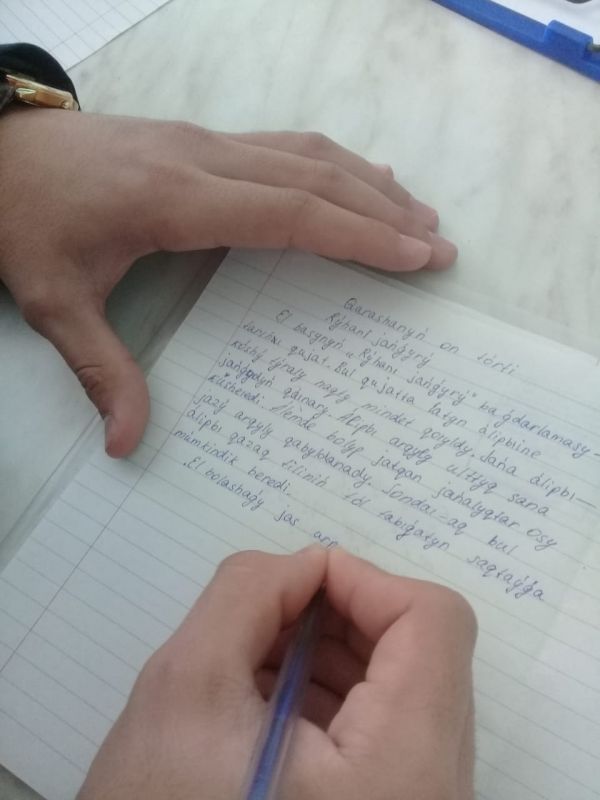 Qarashanyń on tórti
Rýhanı jańǵyrý
El basynyń „Rýhanı jańǵyrý" baǵdarlamasy—
tarıhı qujat. Bul qujatta latyn álipbine
kóshý týraly naqty mindet qoıyldy. Jańa álipbı—
jańǵ qaınary. Álipbı arqyly ulttyq sana
kúsheıedi. Álemde bolyp jatqan jańalyqtar osy
jazý arqyly qabyldanady. Sondaı-aq bul
álipbı qazaq tiliniń tól tabıǵatyn saqtaýǵa
múmkindik beredi.
El bolashaǵy jas urp